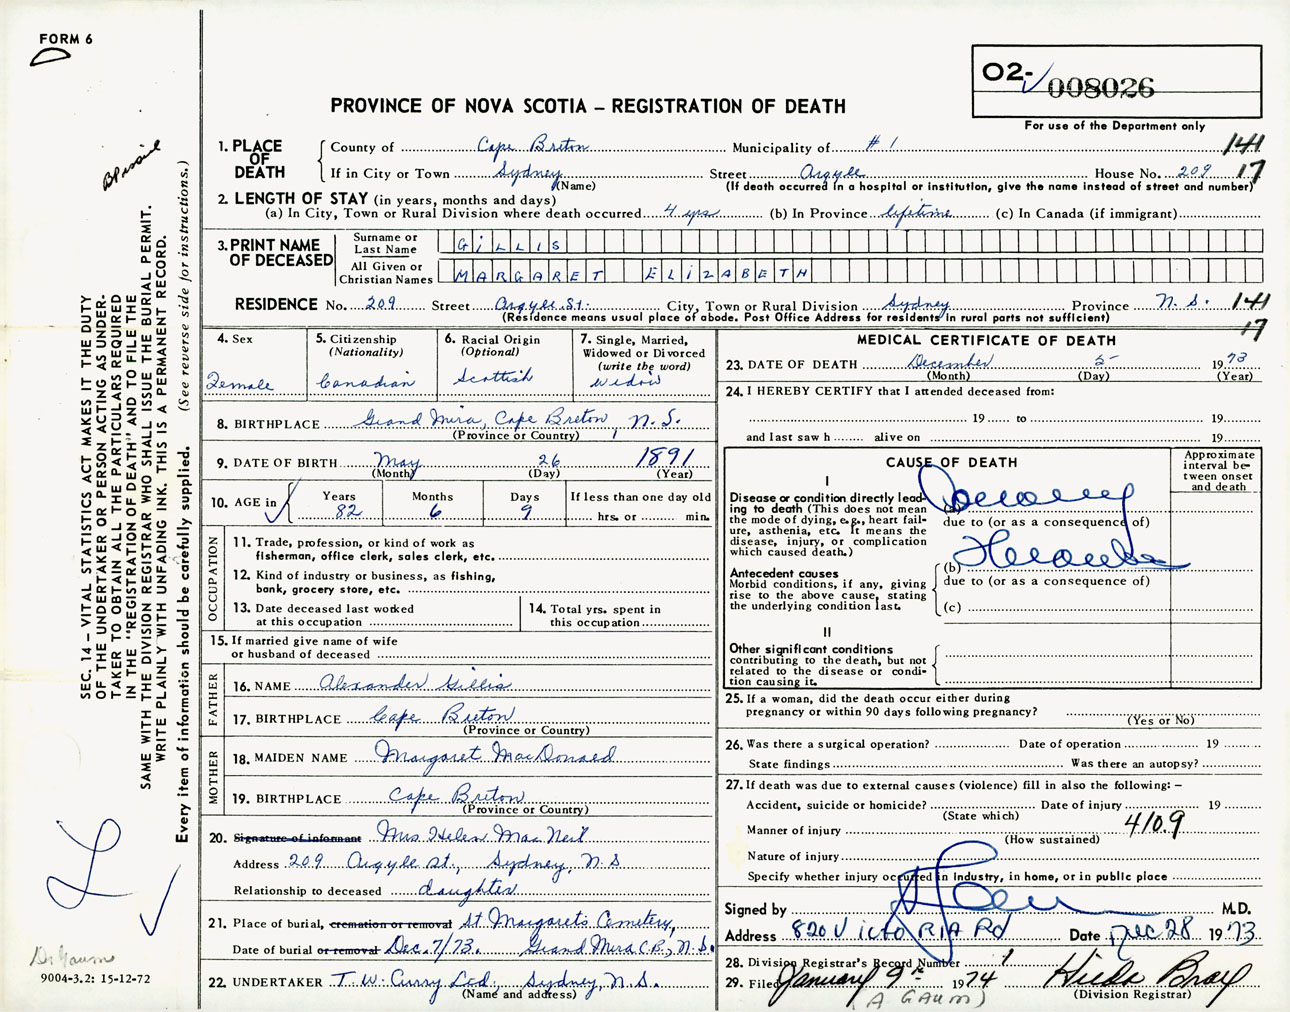 FORM 6
02- 008026
For use of the Department only
PROVINCE OF NOVA SCOTIA – REGISTRATION OF DEATH
1. PLACE OF DEATH
County of Cape Breton Municipality of # 1 141
If in City or Town Sydney Street Argyle House No. 209 17
(Name) (If death occurred in a hospital or institution, give the name instead of street and number)
2. LENGTH OF STAY (in years, months and days)
(a) In City, Town or Rural Division where death occurred 4 yrs (b) In Province lifetime (c) In Canada (if immigrant)
3. PRINT NAME OF DECEASED
Surname or Last Name GILLIS
All Given or Christian Names MARGARET ELIZABETH
RESIDENCE No. 209 Street Argyle St. City, Town or Rural Division Sydney Province N. S. 141
(Residence means usual place of abode. Post Office Address for residents in rural parts not sufficient) 17
4. Sex
Female
5. Citizenship
(Nationality)
Canadian
6. Racial Origin
(Optional)
Scottish
7. Single, Married,
Widowed or Divorced
(write the word)
widow
8. BIRTHPLACE Grand Mira, Cape Breton, N.S.
(Province or Country)
9. DATE OF BIRTH May 26 1891
(Month) (Day) (Year)
10. AGE in Years Months Days If less than one day old
82 6 9 hrs. or min.
OCCUPATION
11. Trade, profession, or kind of work as
fisherman, office clerk, sales clerk, etc.
12. Kind of industry or business, as fishing,
bank, grocery store, etc.
13. Date deceased last worked
at this occupation
14. Total yrs. spent in
this occupation
15. If married give name of wife
or husband of deceased
FATHER
16. NAME Alexander Gillis
17. BIRTHPLACE Cape Breton
(Province or Country)
MOTHER
18. MAIDEN NAME Margaret MacDonald
19. BIRTHPLACE Cape Breton
(Province or Country)
20. Signature of informant Mrs Helen MacNeil
Address 209 Argyle St., Sydney, N.S
Relationship to deceased daughter
21. Place of burial, cremation or removal St Margarets Cemetery,
Date of burial or removal Dec. 7/73. Grand Mira C.B., N.S.
22. UNDERTAKER T. W. Curry Ltd., Sydney, N.S.
(Name and address)
MEDICAL CERTIFICATE OF DEATH
23. DATE OF DEATH December 5 1973
(Month) (Day) (Year)
24. I HEREBY CERTIFY that I attended deceased from:
19 to 19
and last saw h alive on 19
CAUSE OF DEATH
Approximate
interval be-
tween onset
and death
I
Disease or condition directly lead-
ing to death (This does not mean
the mode of dying, e.g., heart fail-
ure, asthenia, etc. It means the
disease, injury, or complication
which caused death.)
(a) Coronary
due to (or as a consequence of)
Antecedent causes
Morbid conditions, if any, giving
rise to the above cause, stating
the underlying condition last.
(b)
due to (or as a consequence of)
(c)
II
Other significant conditions
contributing to the death, but not
related to the disease or condi-
tion causing it.
25. If a woman, did the death occur either during
pregnancy or within 90 days following pregnancy?
(Yes or No)
26. Was there a surgical operation? Date of operation 19
State findings Was there an autopsy?
27. If death was due to external causes (violence) fill in also the following: –
Accident, suicide or homicide? Date of injury 19
(State which)
Manner of injury 4109
(How sustained)
Nature of injury
Specify whether injury occurred in Industry, in home, or in public place
Signed by M.D.
Address 820 VictoRIA Rd Date Dec 28 1973
28. Division Registrar's Record Number 1
29. Filed January 9th 1974 Hilda Bray
(A GAUM) (Division Registrar)
SEC. 14 – VITAL STATISTICS ACT MAKES IT THE DUTY
OF THE UNDERTAKER OR PERSON ACTING AS UNDER-
TAKER TO OBTAIN ALL THE PARTICULARS REQUIRED
IN THE "REGISTRATION OF DEATH" AND TO FILE THE
SAME WITH THE DIVISION REGISTRAR WHO SHALL ISSUE THE BURIAL PERMIT.
WRITE PLAINLY WITH UNFADING INK. THIS IS A PERMANENT RECORD.
Every item of information should be carefully supplied. (See reverse side for instructions.)
Dr Gaum
9004-3.2: 15-12-72